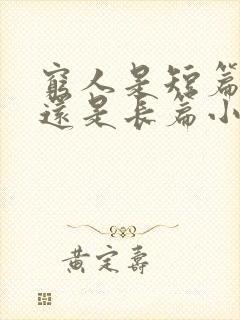 窮人是短篇
還是長篇小
黃定壽